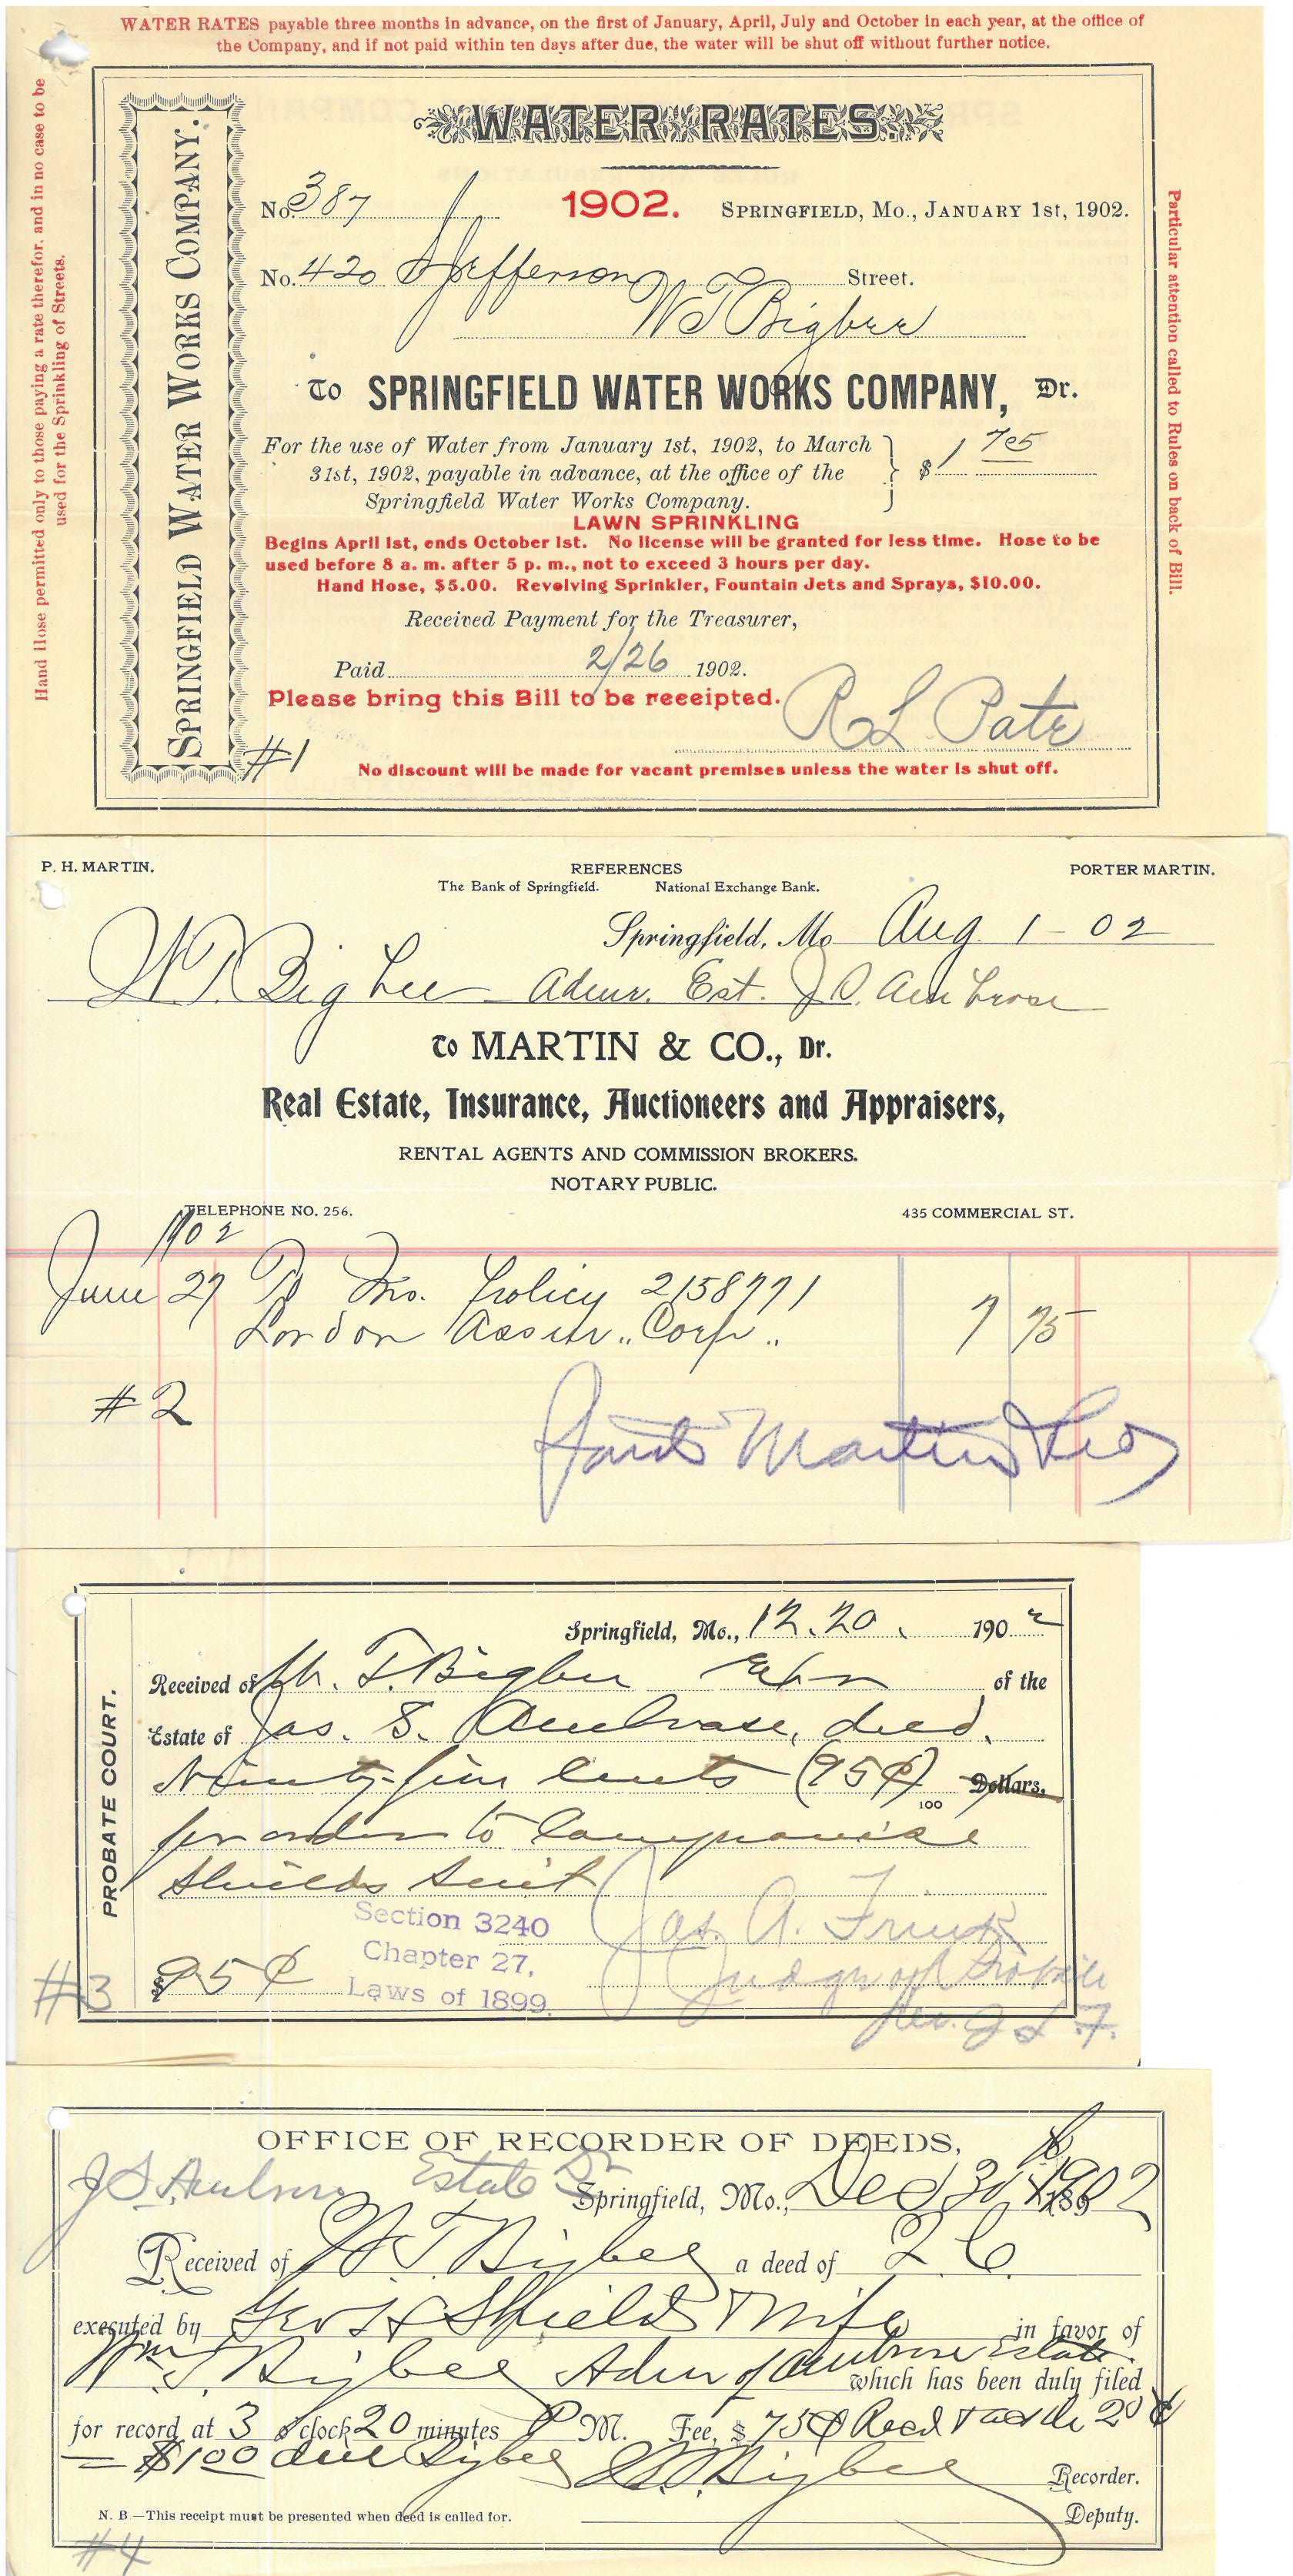 WATER RATES payable three months in advance, on the first of January, April, July and October in each year, at the office of
the Company, and if not paid within ten days after due, the water will be shut off without further notice.
Hand Hose permitted only to those paying a rate therefor, and in no case to be
used for the Sprinkling of Streets.
SPRINGFIELD WATER WORKS COMPANY.
WATER RATES
No. 387 1902. SPRINGFIELD, Mo., JANUARY 1st, 1902.
No. 420 S Jefferson Street.
W T Bigbee
To SPRINGFIELD WATER WORKS COMPANY, Dr.
For the use of Water from January 1st, 1902, to March
31st, 1902, payable in advance, at the office of the $ 1 75
Springfield Water Works Company.
LAWN SPRINKLING
Begins April 1st, ends October 1st. No license will be granted for less time. Hose to be
used before 8 a. m. after 5 p. m., not to exceed 3 hours per day.
Hand Hose, $5.00. Revolving Sprinkler, Fountain Jets and Sprays, $10.00.
Received Payment for the Treasurer,
Paid 2/26 1902.
Please bring this Bill to be receeipted.
R L Pate
#1
No discount will be made for vacant premises unless the water is shut off.
Particular attention called to Rules on back of Bill.
P. H. MARTIN. REFERENCES PORTER MARTIN.
The Bank of Springfield. National Exchange Bank.
Springfield, Mo Aug 1 - 02
W T. Bigbee Admr. Est. J S. Ambrose
To MARTIN & CO., Dr.
Real Estate, Insurance, Auctioneers and Appraisers,
RENTAL AGENTS AND COMMISSION BROKERS.
NOTARY PUBLIC.
TELEPHONE NO. 256. 435 COMMERCIAL ST.
1902
June 27 To Ins. Policy 2158771
London Assur.. Corp.. 7 75
#2
Martin & Co
Springfield, Mo., 12.20. 1902
PROBATE COURT.
Received of W. T. Bigbee of the
Estate of Jas. S. Ambrose, decd.
Ninety-five cents (95¢) Dollars,
100
for order to Compromise
Shields suit
Section 3240
Chapter 27,
Laws of 1899.
Jas. A.
Judge of Probate
$ 95¢
per. J L F.
#3
OFFICE OF RECORDER OF DEEDS,
J S Ambrose Estate Dr
Springfield, Mo., Dec 30 1902
Received of W T Bigbee a deed of 2 C
executed by Geo H Shields & Wife in favor of
Wm T. Bigbee Admr of Ambrose Estate. which has been duly filed
for record at 3 o'clock 20 minutes P M. Fee, $ 75¢ 20 ¢
= $1 00 due Bigbee
Bigbee Recorder.
N. B.—This receipt must be presented when deed is called for. Deputy.
#4